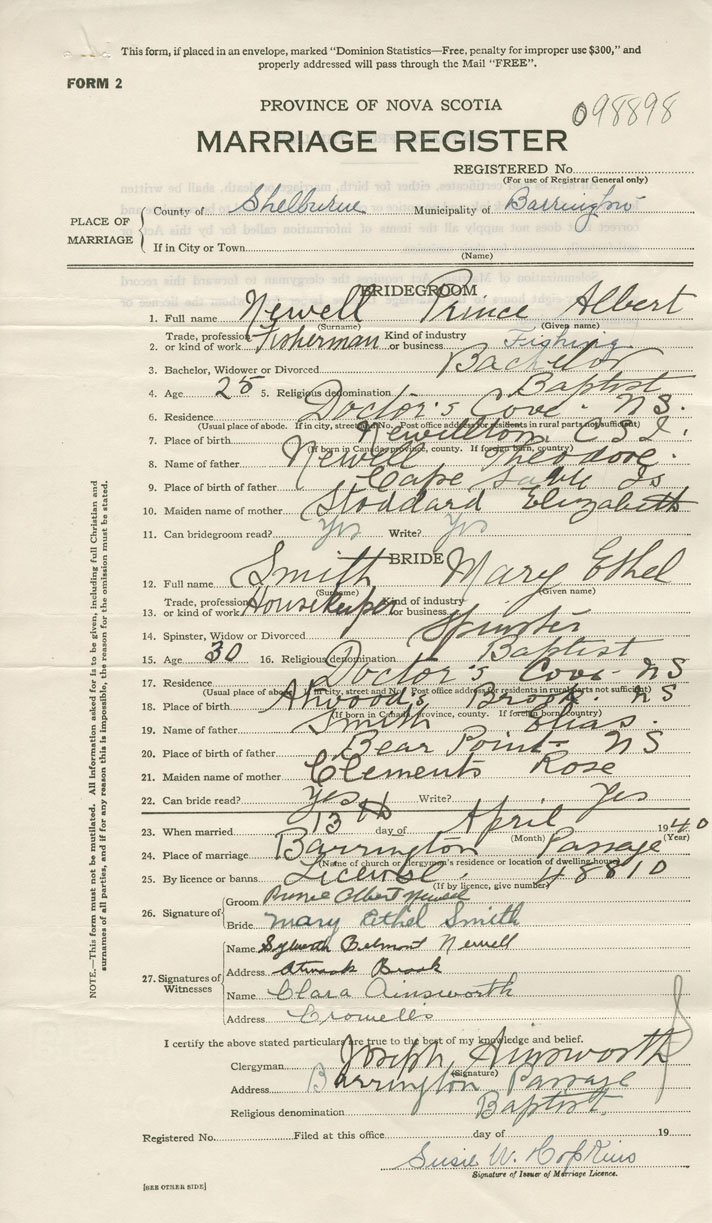 This form, if placed in an envelope, marked "Dominion Statistics—Free, penalty for improper use $300," and
properly addressed will pass through the Mail "FREE".
FORM 2
PROVINCE OF NOVA SCOTIA
098898
MARRIAGE REGISTER
REGISTERED No.
(For use of Registrar General only)
PLACE OF MARRIAGE
County of Shelburne Municipality of Barrington
If in City or Town
(Name)
BRIDEGROOM
1. Full name Newell Prince Albert
(Surname) (Given name)
2. Trade, profession or kind of work Fisherman Kind of industry or business Fishing
3. Bachelor, Widower or Divorced Bachelor
4. Age 25 5. Religious denomination Baptist
6. Residence Doctor's Cove N.S.
(Usual place of abode. If in city, street and No. Post office address for residents in rural parts not sufficient)
7. Place of birth Newellton, C S I.
(If born in Canada, province, county. If foreign born, country)
8. Name of father Newell Theodore.
9. Place of birth of father Cape Sable Is
10. Maiden name of mother Stoddard Elizabeth
11. Can bridegroom read? Yes Write? Yes
BRIDE
12. Full name Smith Mary Ethel
(Surname) (Given name)
13. Trade, profession or kind of work Housekeeper Kind of industry or business
14. Spinster, Widow or Divorced Spinster
15. Age 30 16. Religious denomination Baptist
17. Residence Doctor's Cove N S
(Usual place of abode. If in city, street and No. Post office address for residents in rural parts not sufficient)
18. Place of birth Atwood's Brook. N S
(If born in Canada, province, county. If foreign born, country)
19. Name of father Smith Elias.
20. Place of birth of father Bear Point- N S
21. Maiden name of mother Clements Rose
22. Can bride read? Yes Write? Yes
23. When married 13th day of April 1940
(Month) (Year)
24. Place of marriage Barrington Passage
(Name of church or clergyman's residence or location of dwelling house)
25. By licence or banns License. 48810
(If by licence, give number)
26. Signature of
Groom Prince Albert Newell
Bride Mary Ethel Smith
27. Signatures of Witnesses
Name Sylvester Belmont Newell
Address Atwoods Brook
Name Clara Ainsworth
Address Crowells
I certify the above stated particulars are true to the best of my knowledge and belief.
Clergyman Joseph Ainsworth
(Signature)
Address Barrington Passage
Religious denomination Baptist.
Registered No. Filed at this office day of 19
Susie W. Hopkins
Signature of Issuer of Marriage Licence.
[SEE OTHER SIDE]
NOTE.—This form must not be mutilated. All information asked for is to be given, including full Christian and
surnames of all parties, and if for any reason this is impossible, the reason for the omission must be stated.